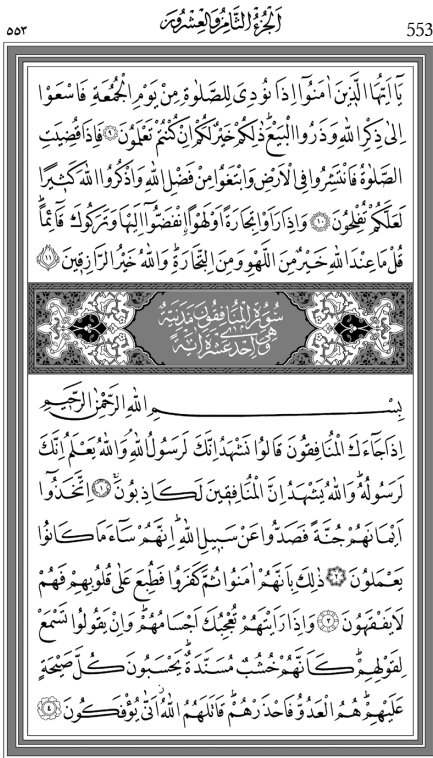 553 اَلْجُزْءُ الثَّامِنُ وَالْعِشْرُونَ ٥٥٣
يَٓا اَيُّهَا الَّذ۪ينَ اٰمَنُٓوا اِذَا نُودِيَ لِلصَّلٰوةِ مِنْ يَوْمِ الْجُمُعَةِ فَاسْعَوْا
اِلٰى ذِكْرِ اللّٰهِ وَذَرُوا الْبَيْعَۜ ذٰلِكُمْ خَيْرٌ لَكُمْ اِنْ كُنْتُمْ تَعْلَمُونَ ﴿٩﴾ فَاِذَا قُضِيَتِ
الصَّلٰوةُ فَانْتَشِرُوا فِي الْاَرْضِ وَابْتَغُوا مِنْ فَضْلِ اللّٰهِ وَاذْكُرُوا اللّٰهَ كَث۪يرًا
لَعَلَّكُمْ تُفْلِحُونَ ﴿١٠﴾ وَاِذَا رَاَوْا تِجَارَةً اَوْ لَهْوًاۨ انْفَضُّٓوا اِلَيْهَا وَتَرَكُوكَ قَٓائِمًاۜ
قُلْ مَا عِنْدَ اللّٰهِ خَيْرٌ مِنَ اللَّهْوِ وَمِنَ التِّجَارَةِۜ وَاللّٰهُ خَيْرُ الرَّازِق۪ينَ ﴿١١﴾
سُورَةُ الْمُنَافِقُونَ مَدَنِيَّةٌ
وَهِيَ اِحْدٰى عَشْرَةَ اٰيَةً
بِسْمِ اللّٰهِ الرَّحْمٰنِ الرَّح۪يمِ
اِذَا جَٓاءَكَ الْمُنَافِقُونَ قَالُوا نَشْهَدُ اِنَّكَ لَرَسُولُ اللّٰهِۢ وَاللّٰهُ يَعْلَمُ اِنَّكَ
لَرَسُولُهُۜ وَاللّٰهُ يَشْهَدُ اِنَّ الْمُنَافِق۪ينَ لَكَاذِبُونَۚ ﴿١﴾ اِتَّخَذُٓوا
اَيْمَانَهُمْ جُنَّةً فَصَدُّوا عَنْ سَب۪يلِ اللّٰهِۜ اِنَّهُمْ سَٓاءَ مَا كَانُوا
يَعْمَلُونَ ﴿٢﴾ ذٰلِكَ بِاَنَّهُمْ اٰمَنُوا ثُمَّ كَفَرُوا فَطُبِعَ عَلٰى قُلُوبِهِمْ فَهُمْ
لَا يَفْقَهُونَ ﴿٣﴾ وَاِذَا رَاَيْتَهُمْ تُعْجِبُكَ اَجْسَامُهُمْۜ وَاِنْ يَقُولُوا تَسْمَعْ
لِقَوْلِهِمْۜ كَاَنَّهُمْ خُشُبٌ مُسَنَّدَةٌۜ يَحْسَبُونَ كُلَّ صَيْحَةٍ
عَلَيْهِمْۜ هُمُ الْعَدُوُّ فَاحْذَرْهُمْۜ قَاتَلَهُمُ اللّٰهُۘ اَنّٰى يُؤْفَكُونَ ﴿٤﴾